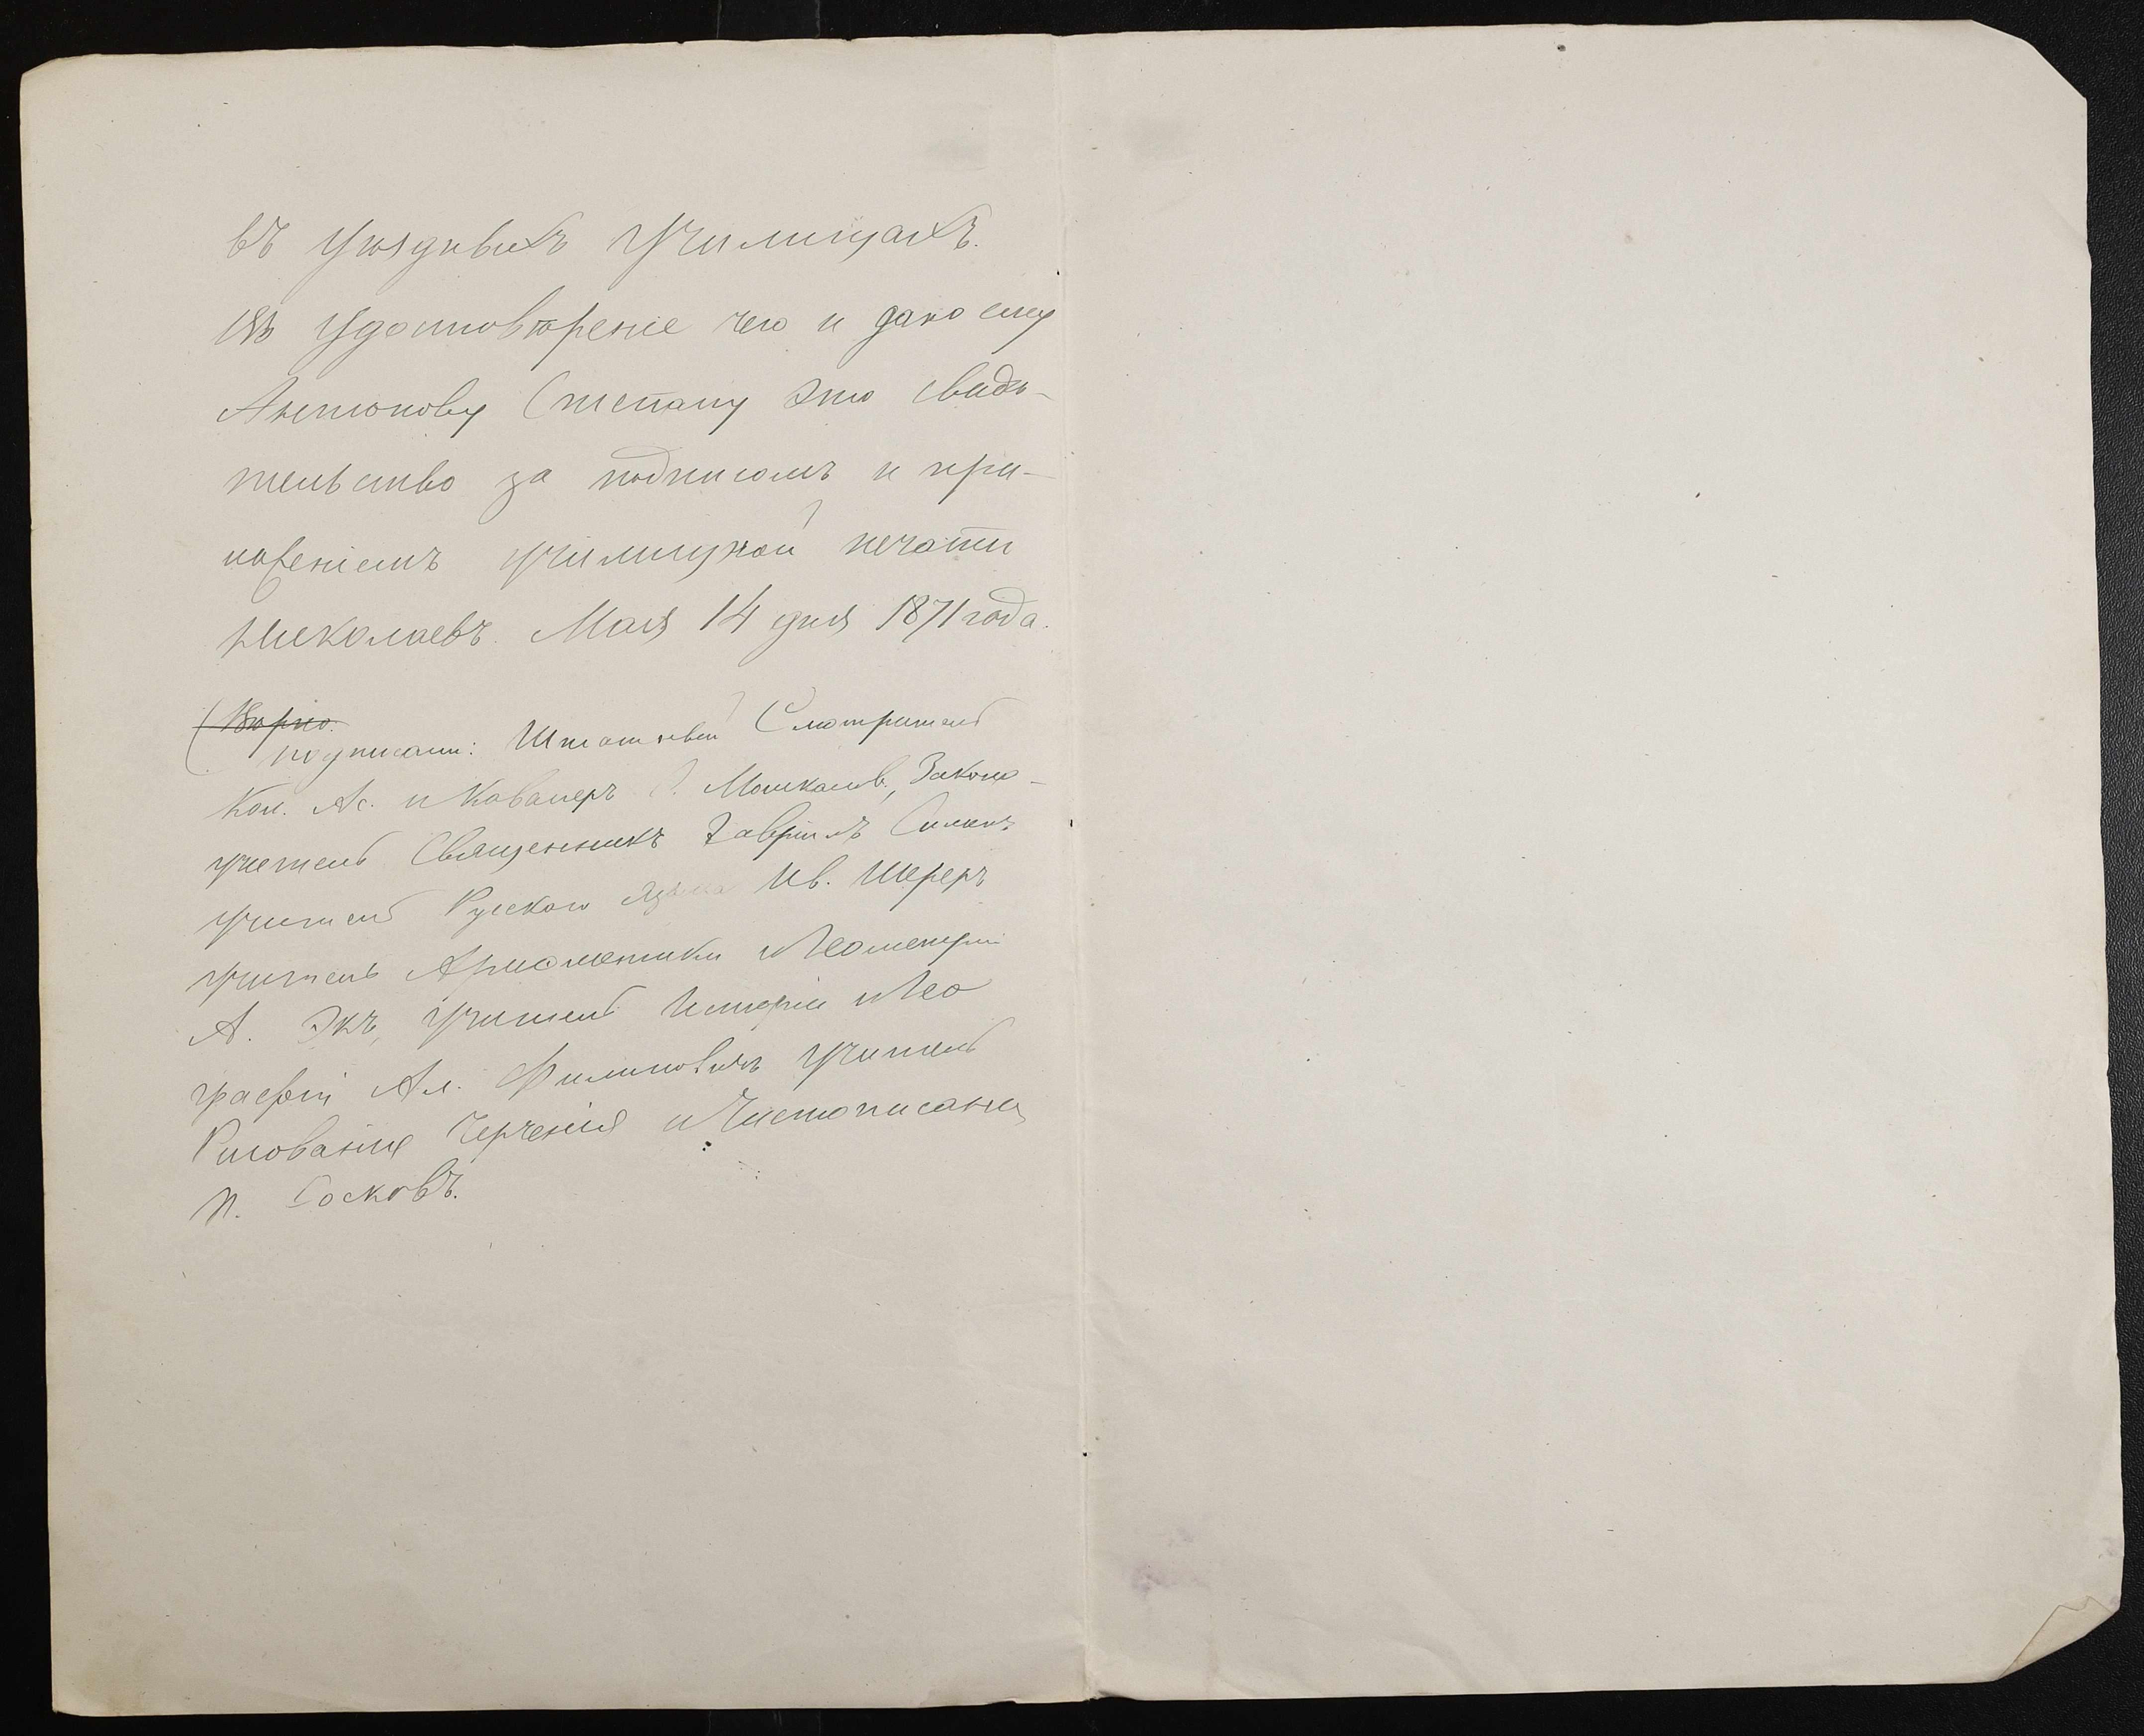 въ уѣздныхъ училищахъ.
Въ удостовѣреніе чего и дано ему
Антонову Степану это свидѣ-
тельство за подписомъ и при-
ложеніемъ училищной печати
Николаевъ. Мая 14 дня 1871 года.
(Вѣрно.
подписали: Штатный Смотритель
Кол. Ас. и Кавалеръ Законо-
учитель Священникъ Гавріилъ
учитель Рускаго языка Ив. Шереръ
учитель Ариѳметики и Геометріи
А. Экъ, учитель Исторіи и Гео
графіи Ал. Филиповичъ учитель
Рисованія Черченія и Чистописанія
П. Сосковъ.